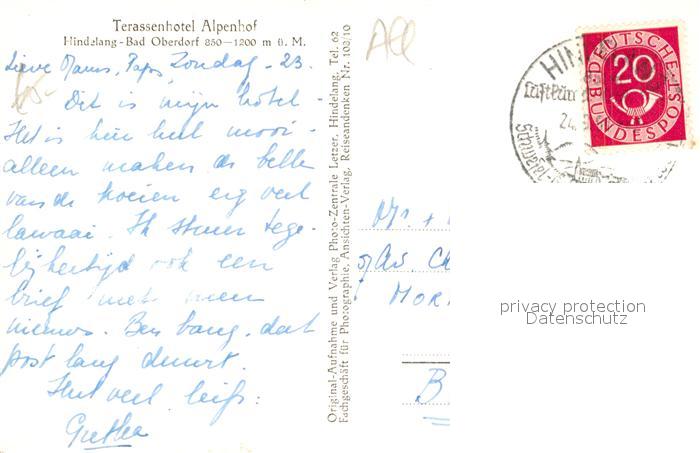 Terassenhotel Alpenhof
Hindelang-Bad Oberdorf 850-1200 m ü. M.
Lieve Mams, Paps, Zondag - 23.
Dit is mijn hotel -
Het is hier heel mooi -
alleen maken de bellen
van de koeien erg veel
lawaai. Ik stuur tege-
lijkertijd ook een
brief met meer
nieuws. Ben bang, dat
post lang duurt.
Heel veel liefs:
Gretha
Original-Aufnahme und Verlag Photo-Zentrale Letzer, Hindelang, Tel. 62
Fachgeschäft für Photographie, Ansichten-Verlag, Reiseandenken Nr. 103/10
HIN
Luftkur
24.
DEUTSCHE
20
BUNDESPOST
Mr. +
MOR
B
privacy protection
Datenschutz